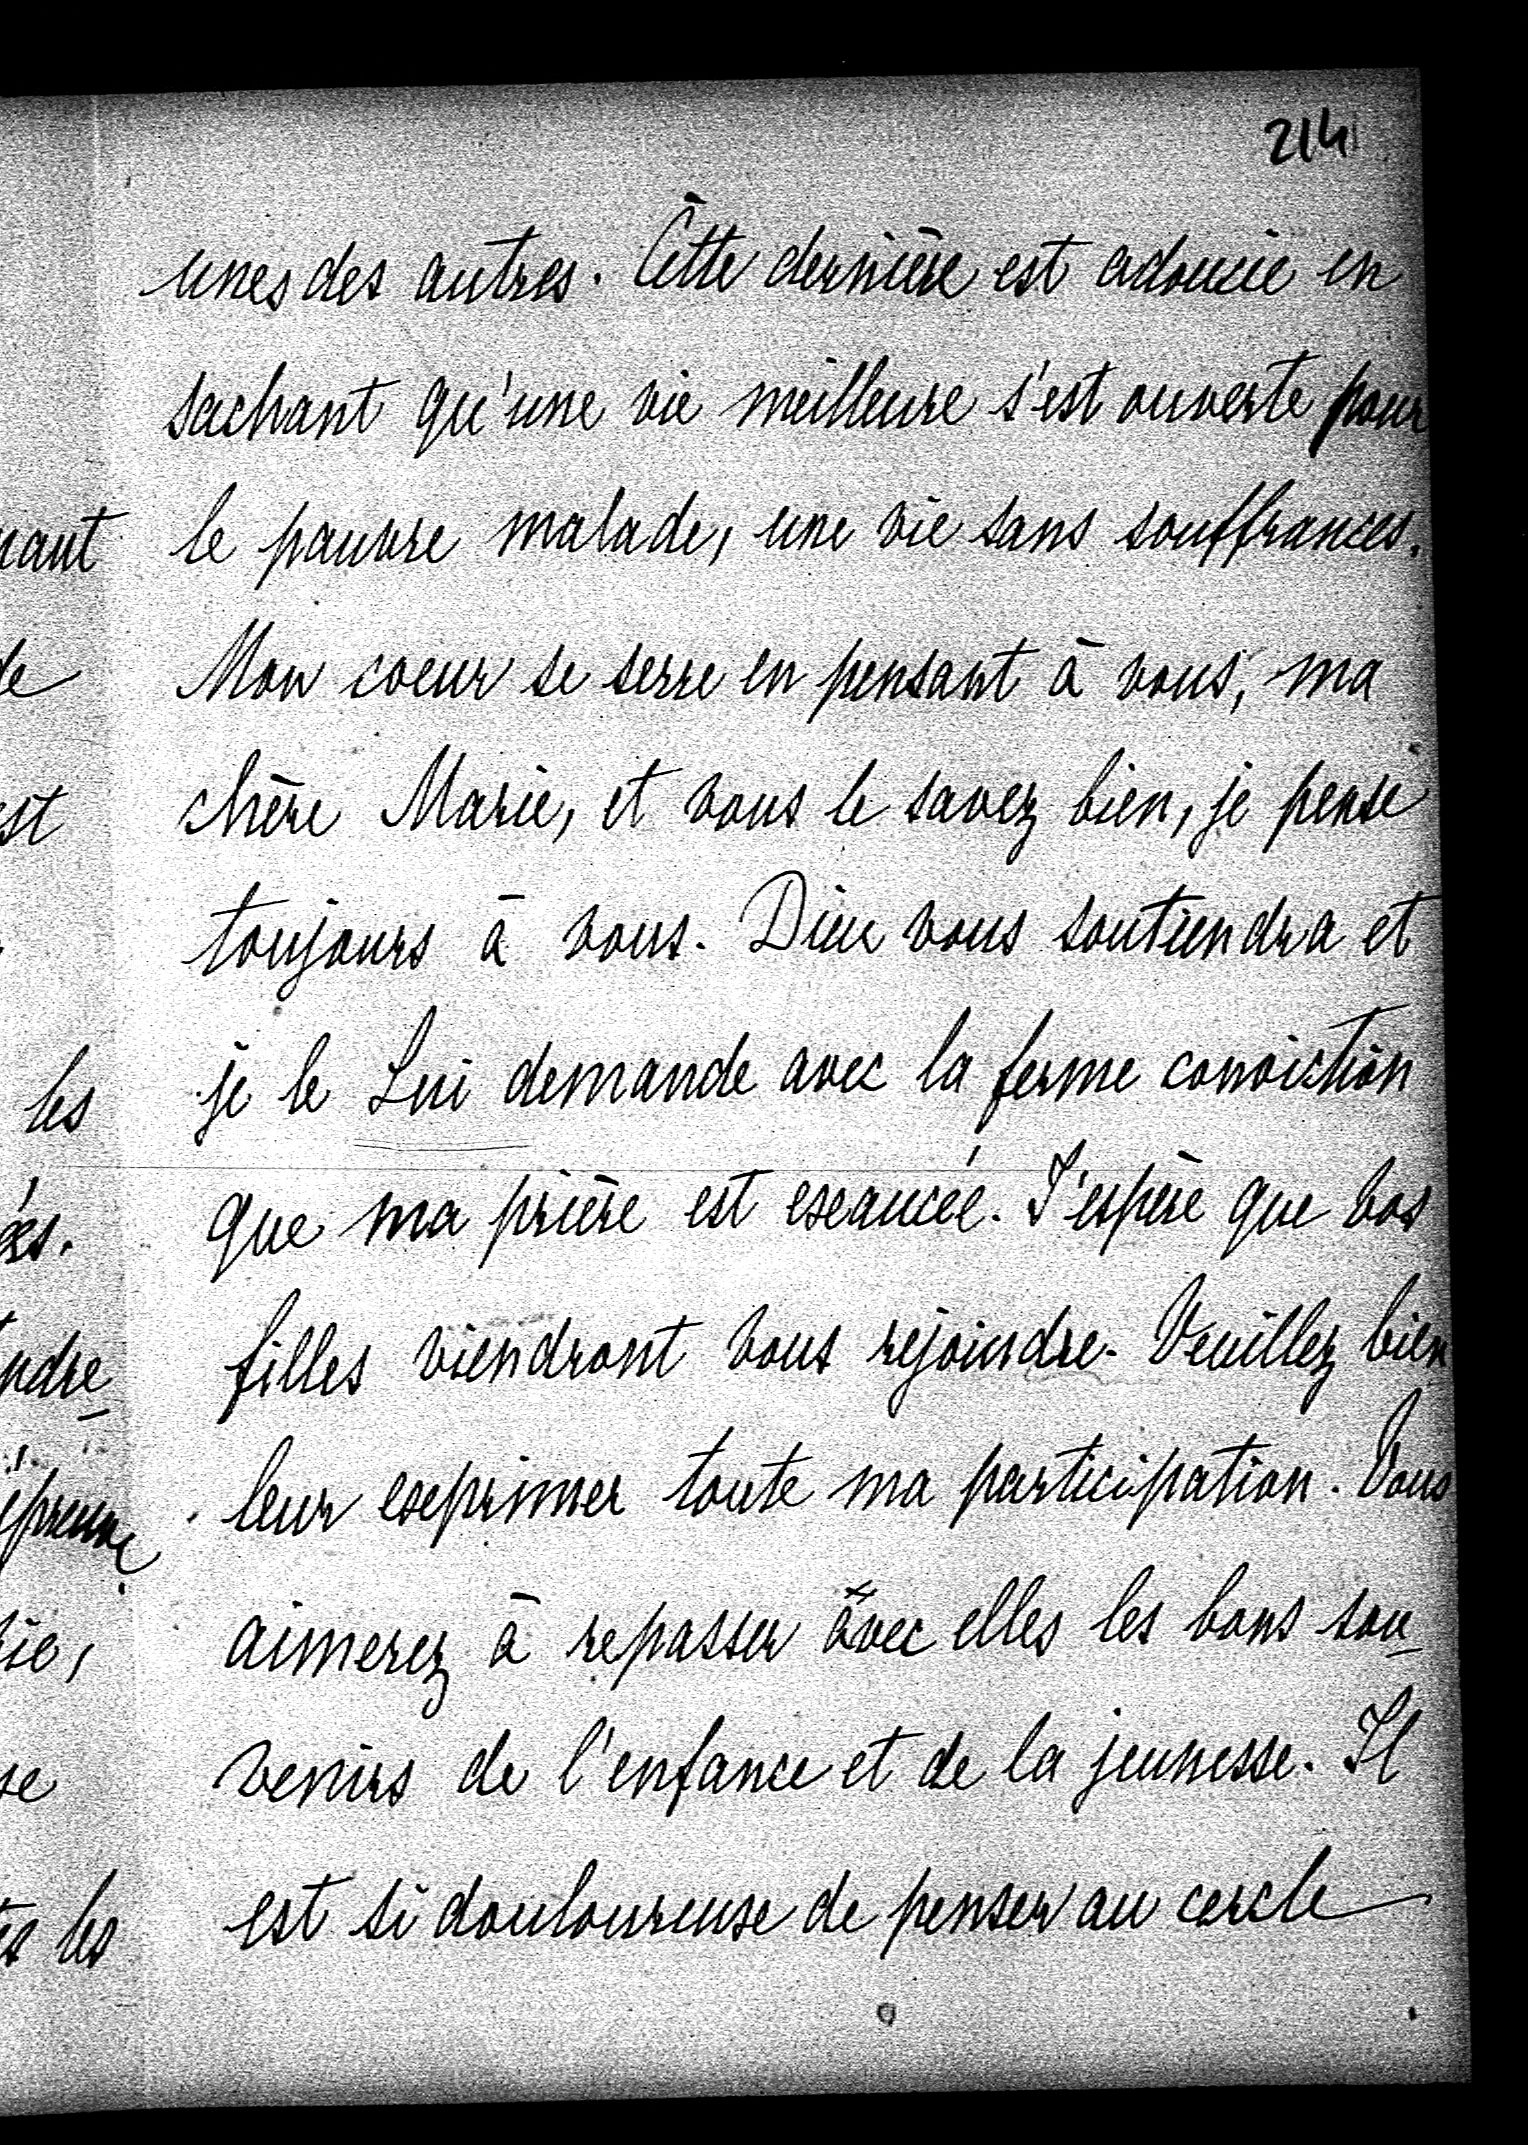 214
unes des autres. Cette dernière est adoucie en
sachant qu'une vie meilleure s'est ouverte pour
le pauvre malade, une vie sans souffrances.
Mon coeur se serre en pensant à vous, ma
chère Marie, et vous le savez bien, je pense
toujours à vous. Dieu vous soutiendra et
je le Lui demande avec la ferme conviction
que ma prière est exaucée. J'espère que vos
filles viendront vous rejoindre. Veuillez bien
leur exprimer toute ma participation. Vous
aimerez à repasser avec elles les bons sou-
venirs de l'enfance et de la jeunesse. Il
est si douloureuse de penser au cercle
de
est
les
ndre
épreuve
se
les